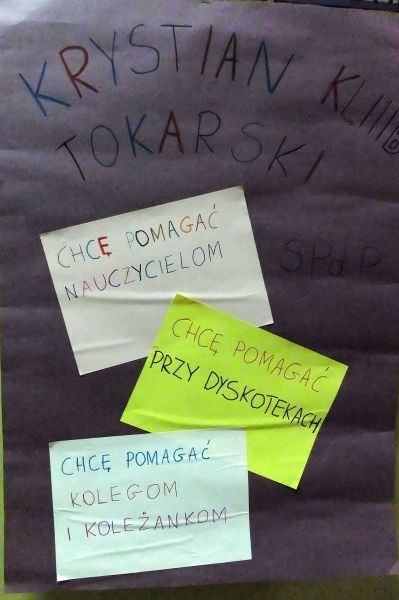 KRYSTIAN KL III b
TOKARSKI
CHCĘ POMAGAĆ
NAUCZYCIELOM
SPdP
CHCĘ POMAGAĆ
PRZY DYSKOTEKACH
CHCĘ POMAGAĆ
KOLEGOM
I KOLEŻANKOM